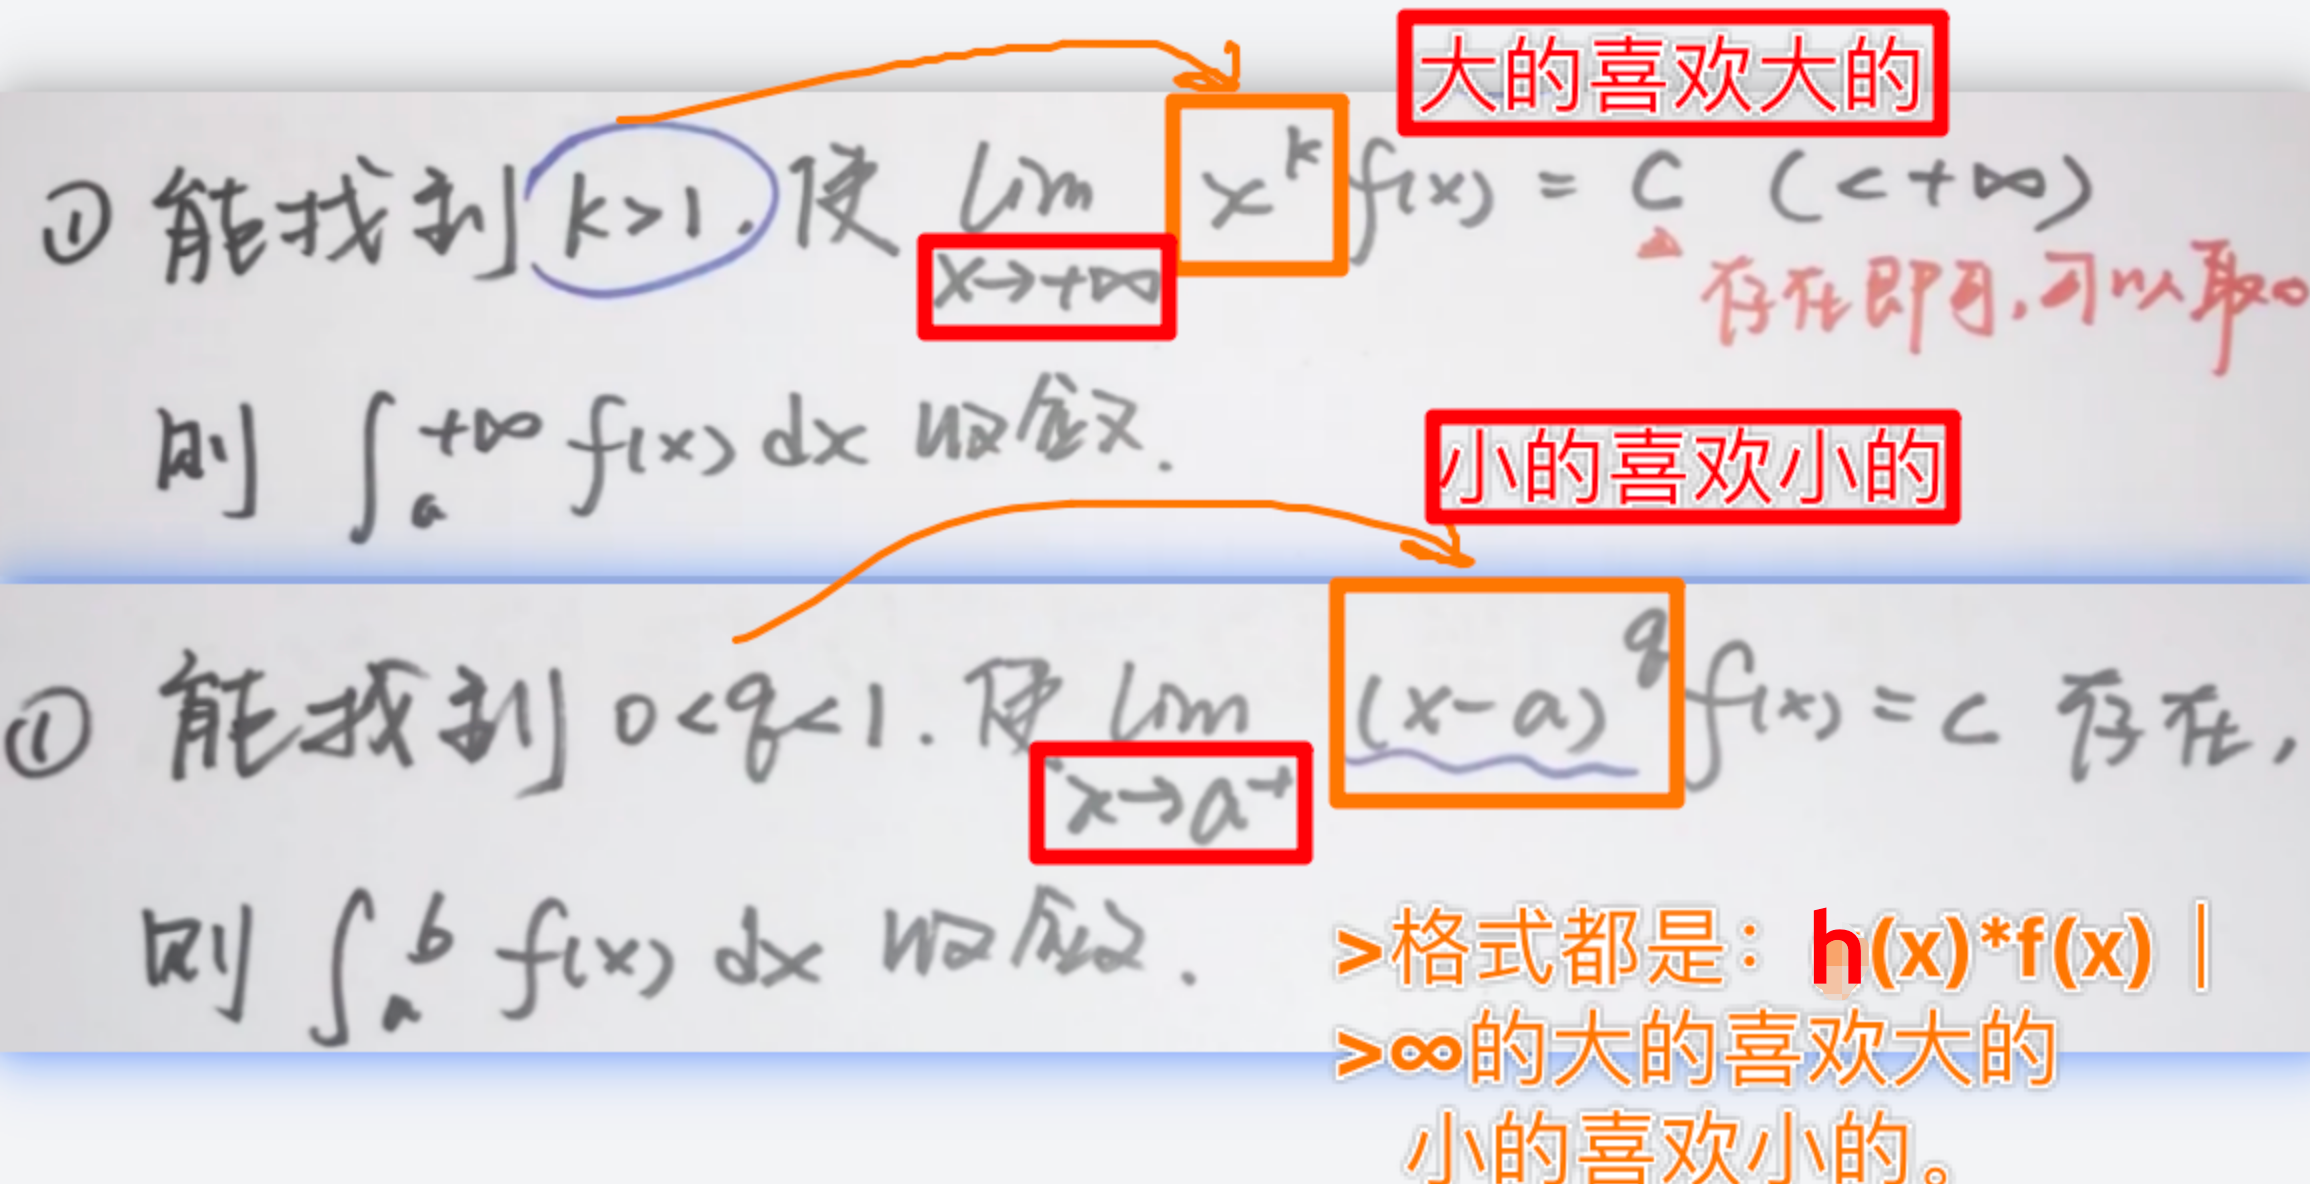 大的喜欢大的
① 能找到 k>1. 使 lim x^k f(x) = C (<+∞)
x→+∞
存在即可,可以取0
则 ∫_a^{+∞} f(x) dx 收敛.
小的喜欢小的
① 能找到 0<q<1. 使 lim (x-a)^q f(x) = C 存在,
x→a⁺
则 ∫_a^b f(x) dx 收敛.
>格式都是：h(x)*f(x)｜
>∞的大的喜欢大的
小的喜欢小的。